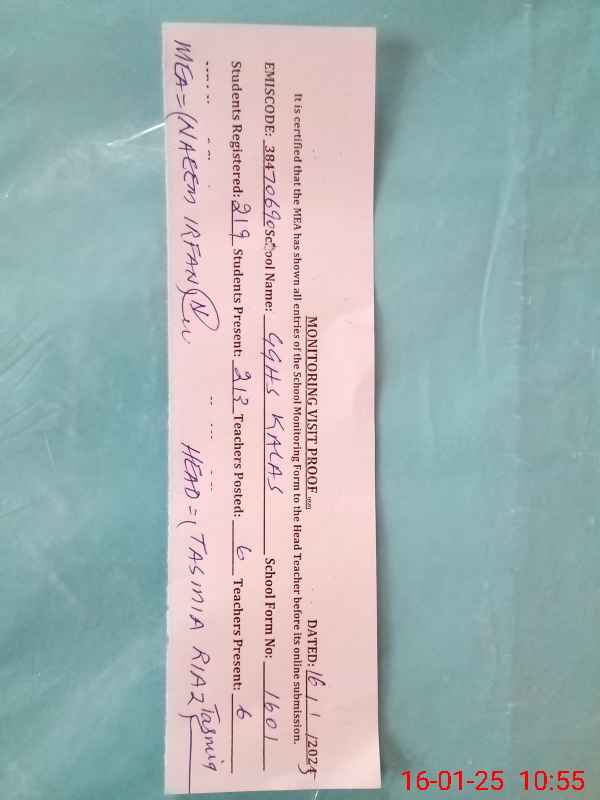 MONITORING VISIT PROOF DATED: 16/1/2025
It is certified that the MEA has shown all entries of the School Monitoring Form to the Head Teacher before its online submission.
EMISCODE: 38470690 School Name: GGHS KALAS School Form No: 1601
Students Registered: 219 Students Present: 213 Teachers Posted: 6 Teachers Present: 6
MEA = (NAEEM IRFAN) HEAD = (TASMIA RIAZ) Tasmia
16-01-25 10:55